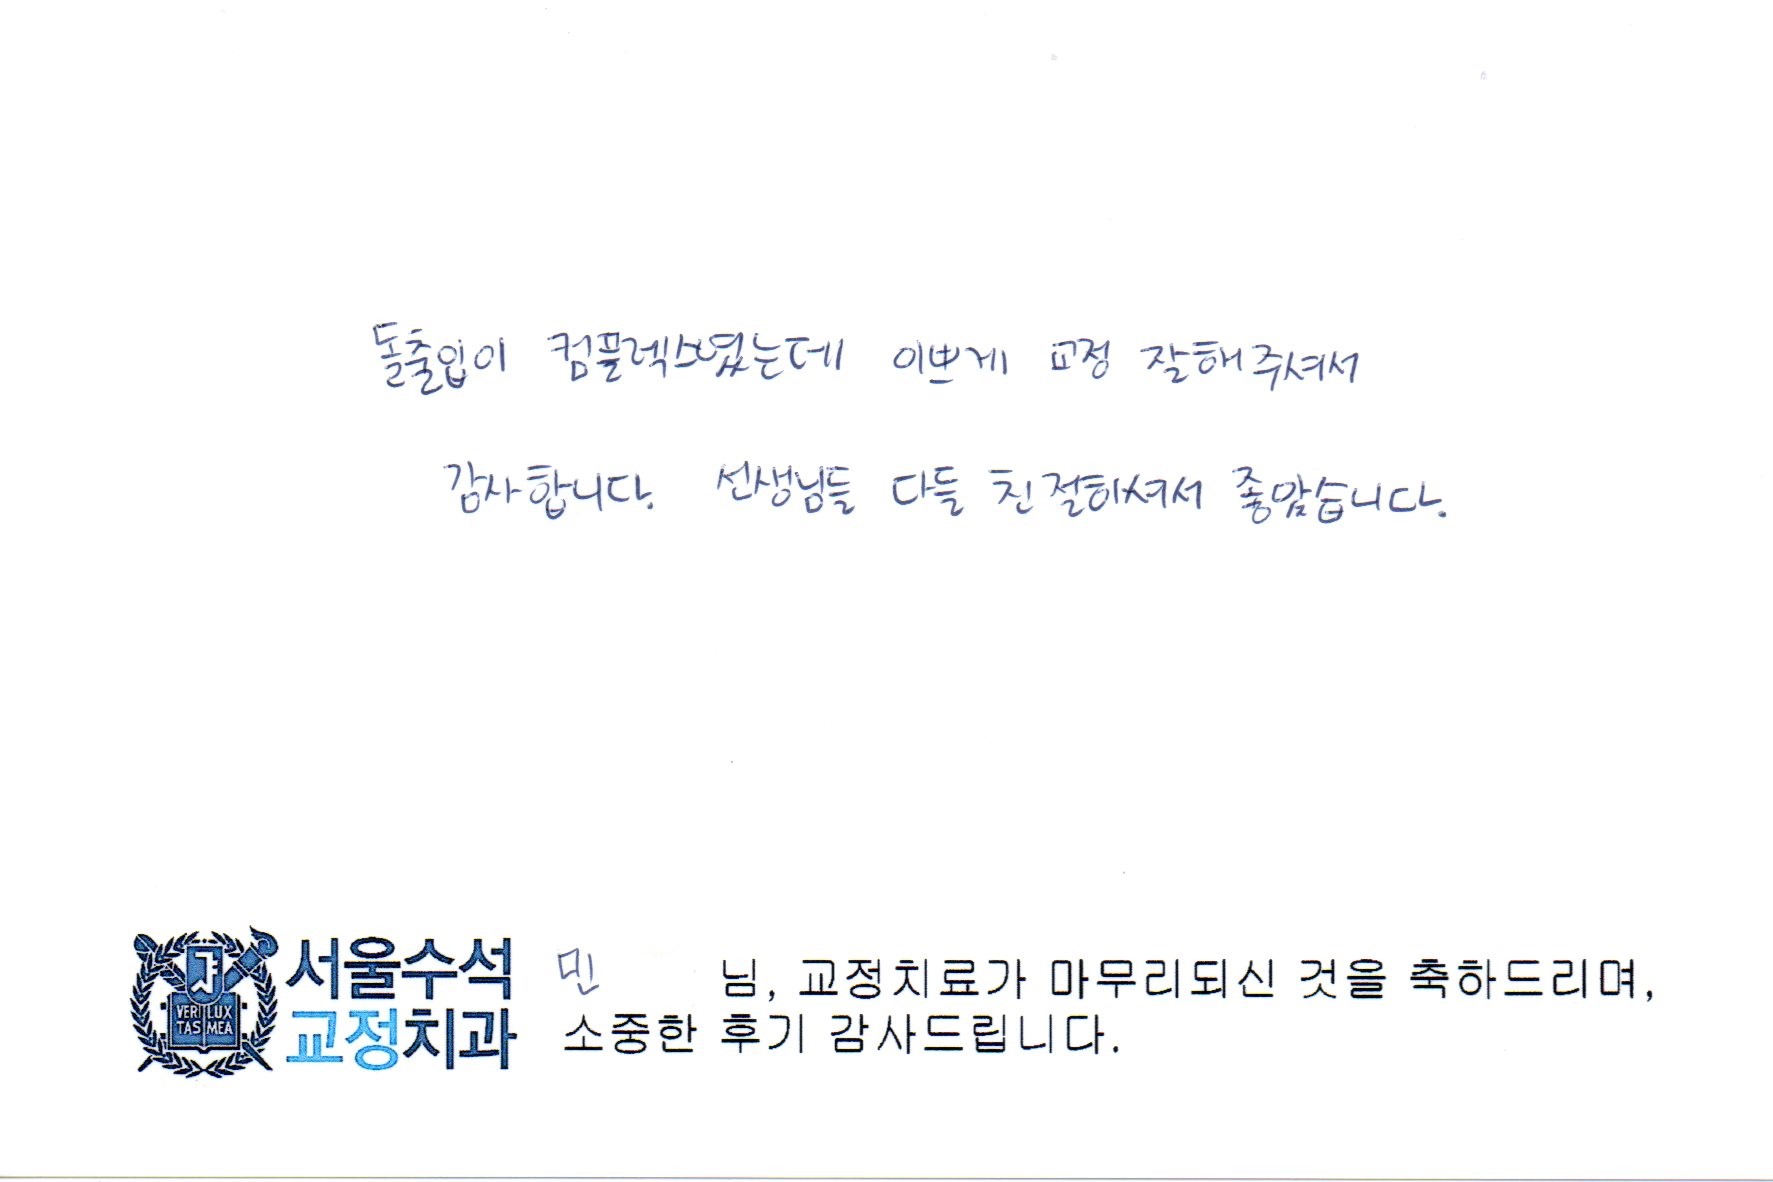 돌출입이 컴플렉스였는데 이쁘게 교정 잘해주셔서
감사합니다. 선생님들 다들 친절하셔서 좋았습니다.
서울수석
교정치과
VERI LUX
TAS MEA
민 님, 교정치료가 마무리되신 것을 축하드리며,
소중한 후기 감사드립니다.